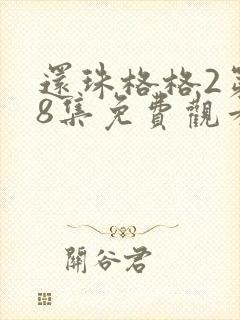 還珠格格2
8集免費觀
關谷君